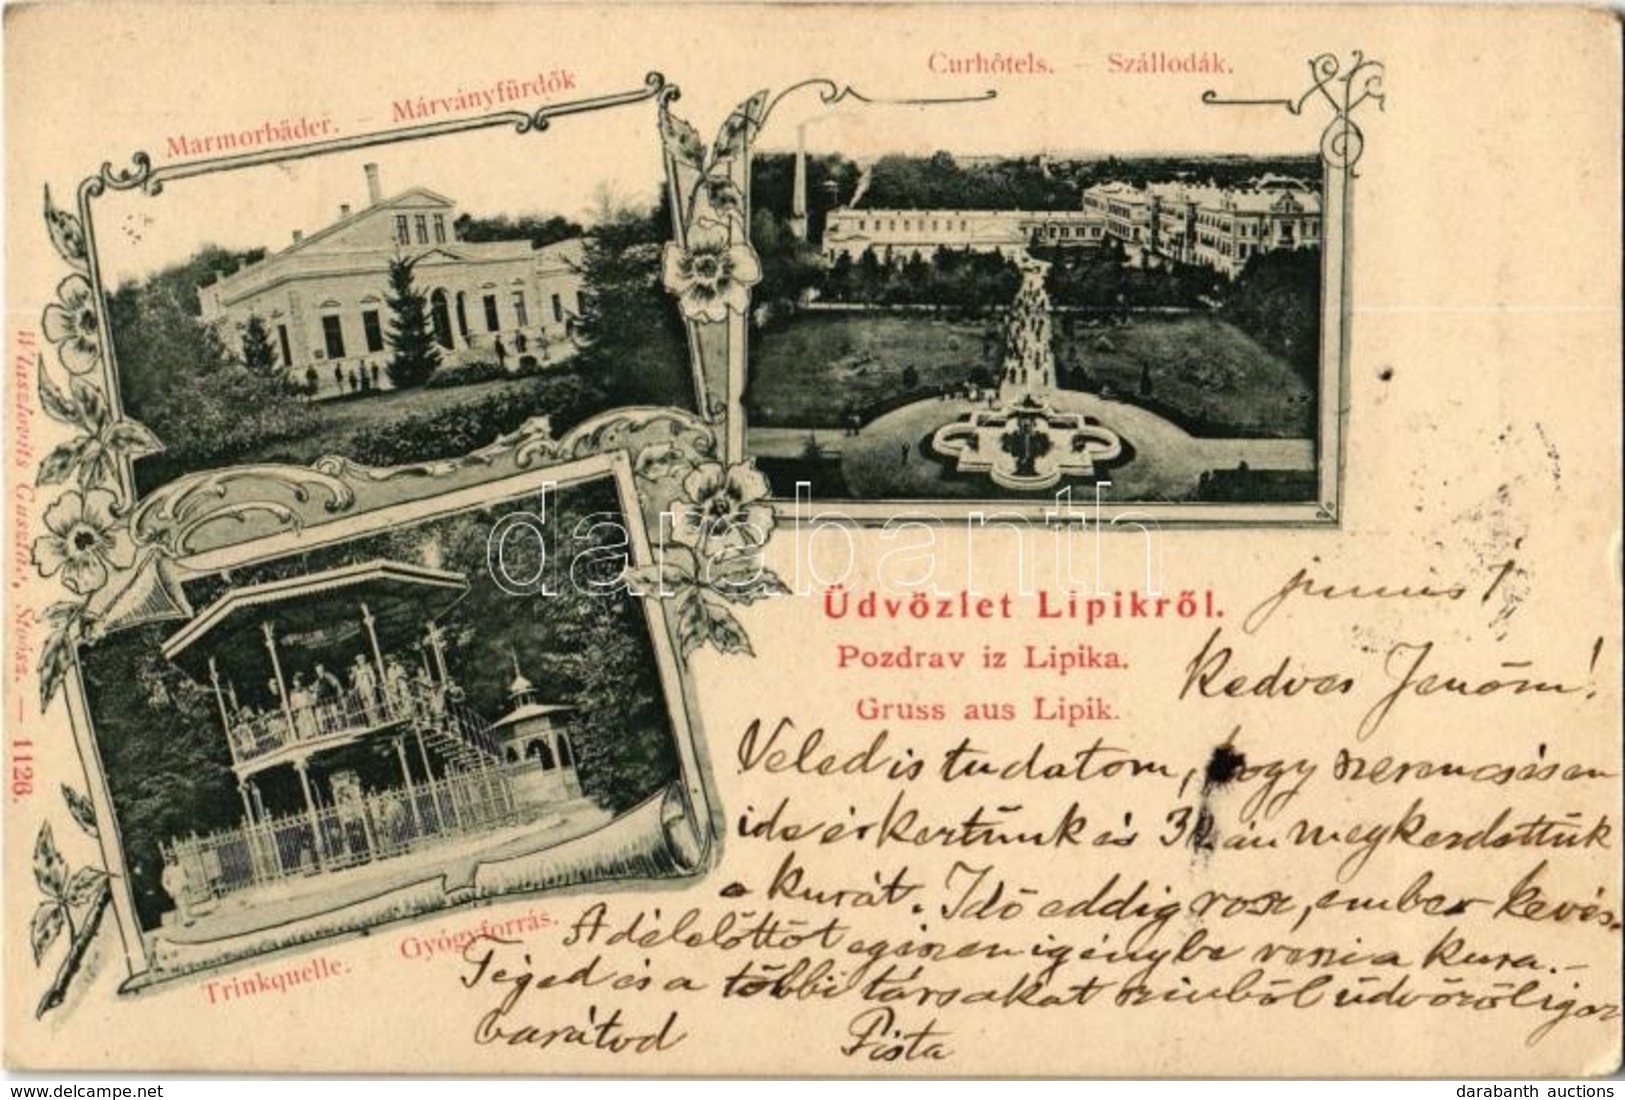 Marmorbäder. – Márványfürdők
Curhôtels. – Szállodák.
Wlaszlovits Gusztáv, Stósz. — 1126.
darabanth
Üdvözlet Lipikről.
Pozdrav iz Lipika.
Gruss aus Lipik.
Trinkquelle. – Gyógyforrás.
junius 1
Kedves Jenőm!
Veled is tudatom, hogy szerencsésen
ide érkeztünk és án megkezdettük
a kurát. Idő eddig rosz, ember kevés.
A délelőttöt egészen igénybe veszi a kura. –
Téged és a többi társakat szivből üdvözöl igaz
barátod Pista
darabanth auctions